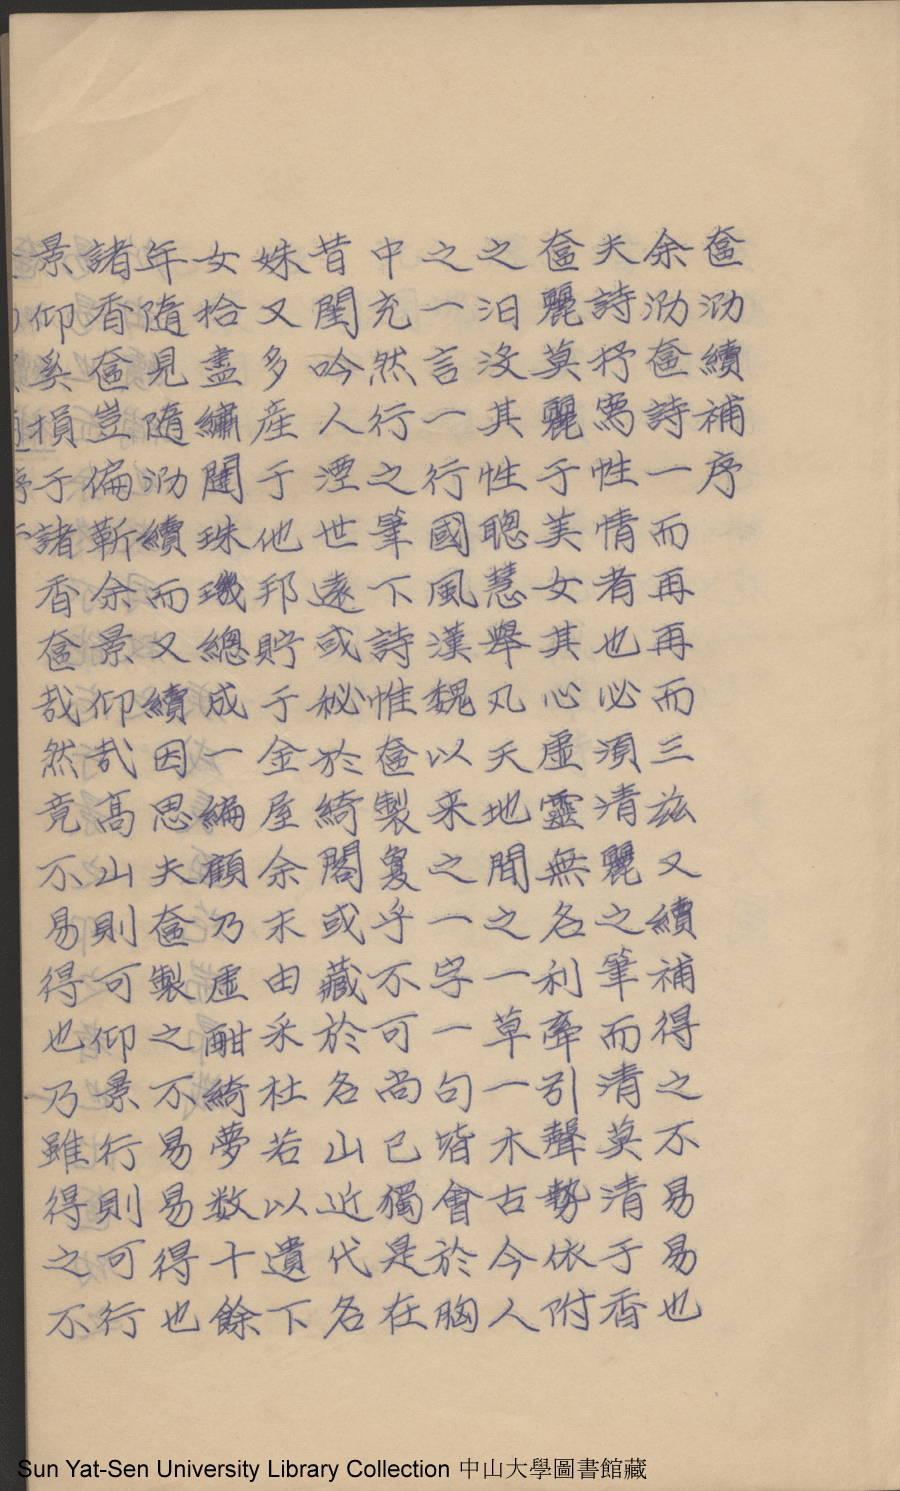 奩泐續補序
余泐奩詩一而再再而三茲又續補得之不易易也
夫詩抒寫性情者也必須清麗之筆而清莫清于香
奩麗莫麗于美女其心虛靈無名利牽引聲勢依附
之汩沒其性聰慧舉凡天地間之一草一木古今人
之一言一行國風漢魏以来之一字一句皆會於胸
中充然行之筆下詩惟奩製敻乎不可尚已獨是在
昔閨吟人湮世遠或秘於綺閣或藏於名山近代名
姝又多産于他邦貯于金屋余末由采杜若以遺下
女拾盡繡闥珠璣總成一編顧乃虛酣綺夢数十餘
年隨見隨泐續而又續因思夫奩製之不易易得也
諸香奩豈偏靳余景仰哉高山則可仰景行則可行
景仰奚損于諸香奩哉然竟不易得也乃雖得之不
Sun Yat-Sen University Library Collection 中山大學圖書館藏